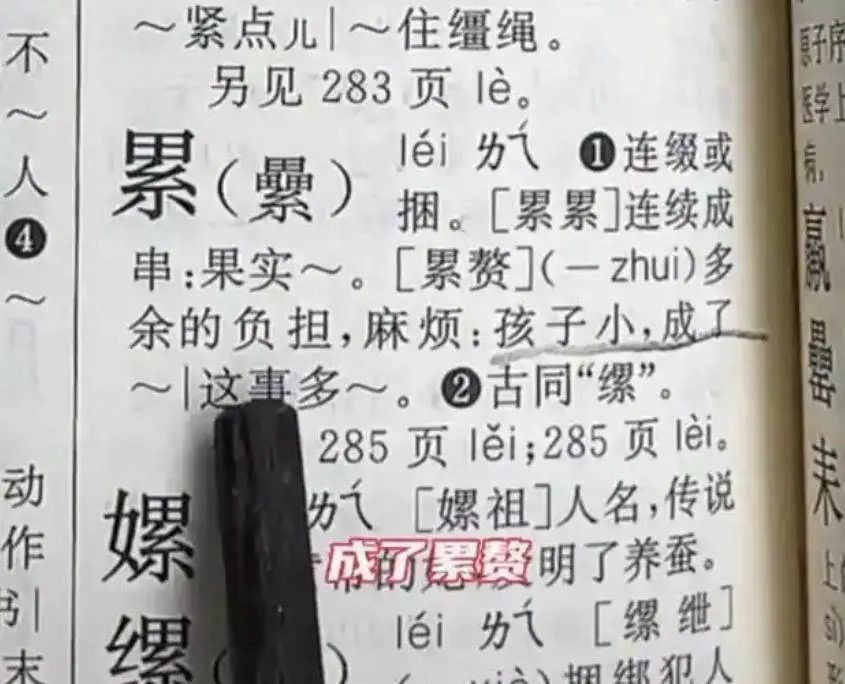 ～紧点儿|～住缰绳。
另见 283 页 lè。
累(纍) léi ㄌㄟˊ ❶连缀或
捆。[累累]连续成
串:果实～。[累赘](－zhui)多
余的负担,麻烦:孩子小,成了
～|这事多～。❷古同“缧”。
285 页 lěi;285 页 lèi。
嫘 ㄌㄟˊ [嫘祖]人名,传说
明了养蚕。
成了累赘
缧 léi ㄌㄟˊ [缧绁]
捆绑犯人
不
～
人
❹
～
动
作
书|
末
原子序
医学上
病,
羸
罍
耒